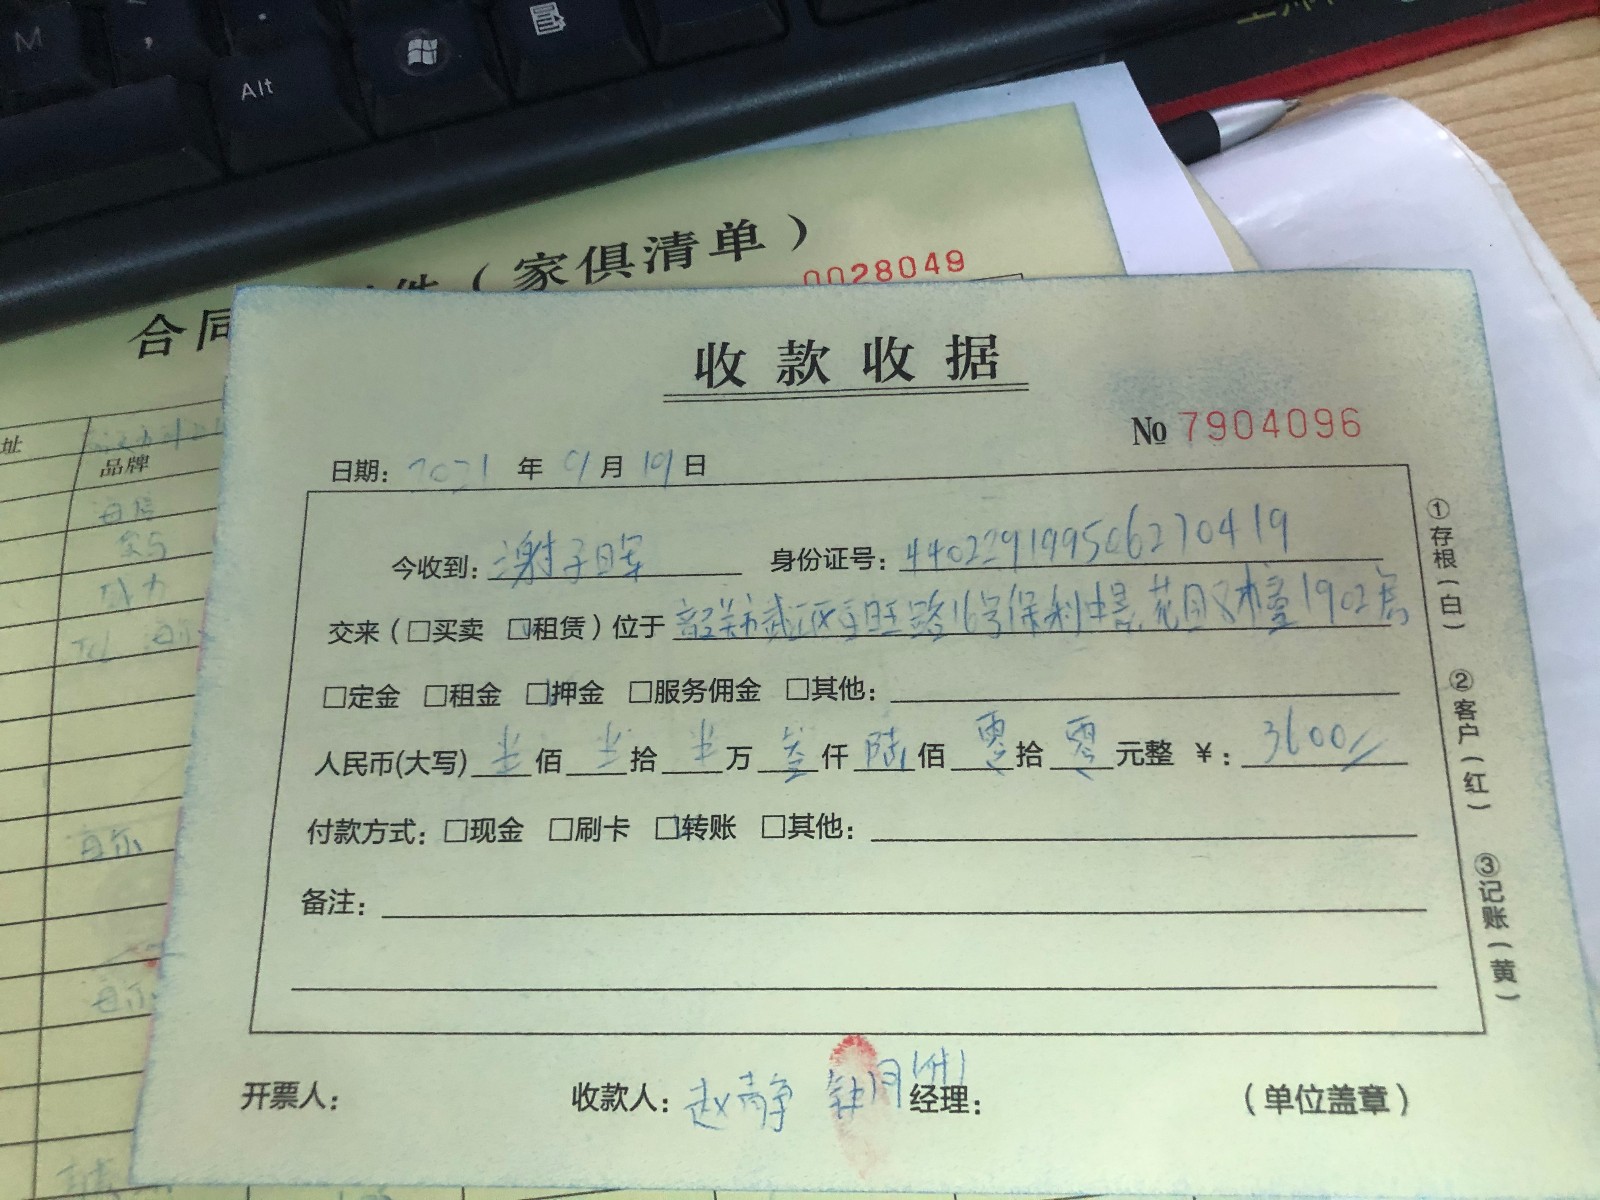 M
Alt
件（家俱清单）
合同
0028049
址
品牌
海信
海尔
海尔
收款收据
№ 7904096
日期: 2021 年 9 月 19 日
今收到: 谢子晖 身份证号: 440229199506270419
交来（□买卖 ☑租赁）位于 16号保利中景花园 1902房
□定金 □租金 ☑押金 □服务佣金 □其他:
人民币(大写) 半 佰 半 拾 半 万 叁 仟 陆 佰 零 拾 零 元整 ¥: 3600
付款方式: □现金 □刷卡 ☑转账 □其他:
备注:
①存根(白)
②客户(红)
③记账(黄)
开票人: 收款人: 赵静 经理: (单位盖章)